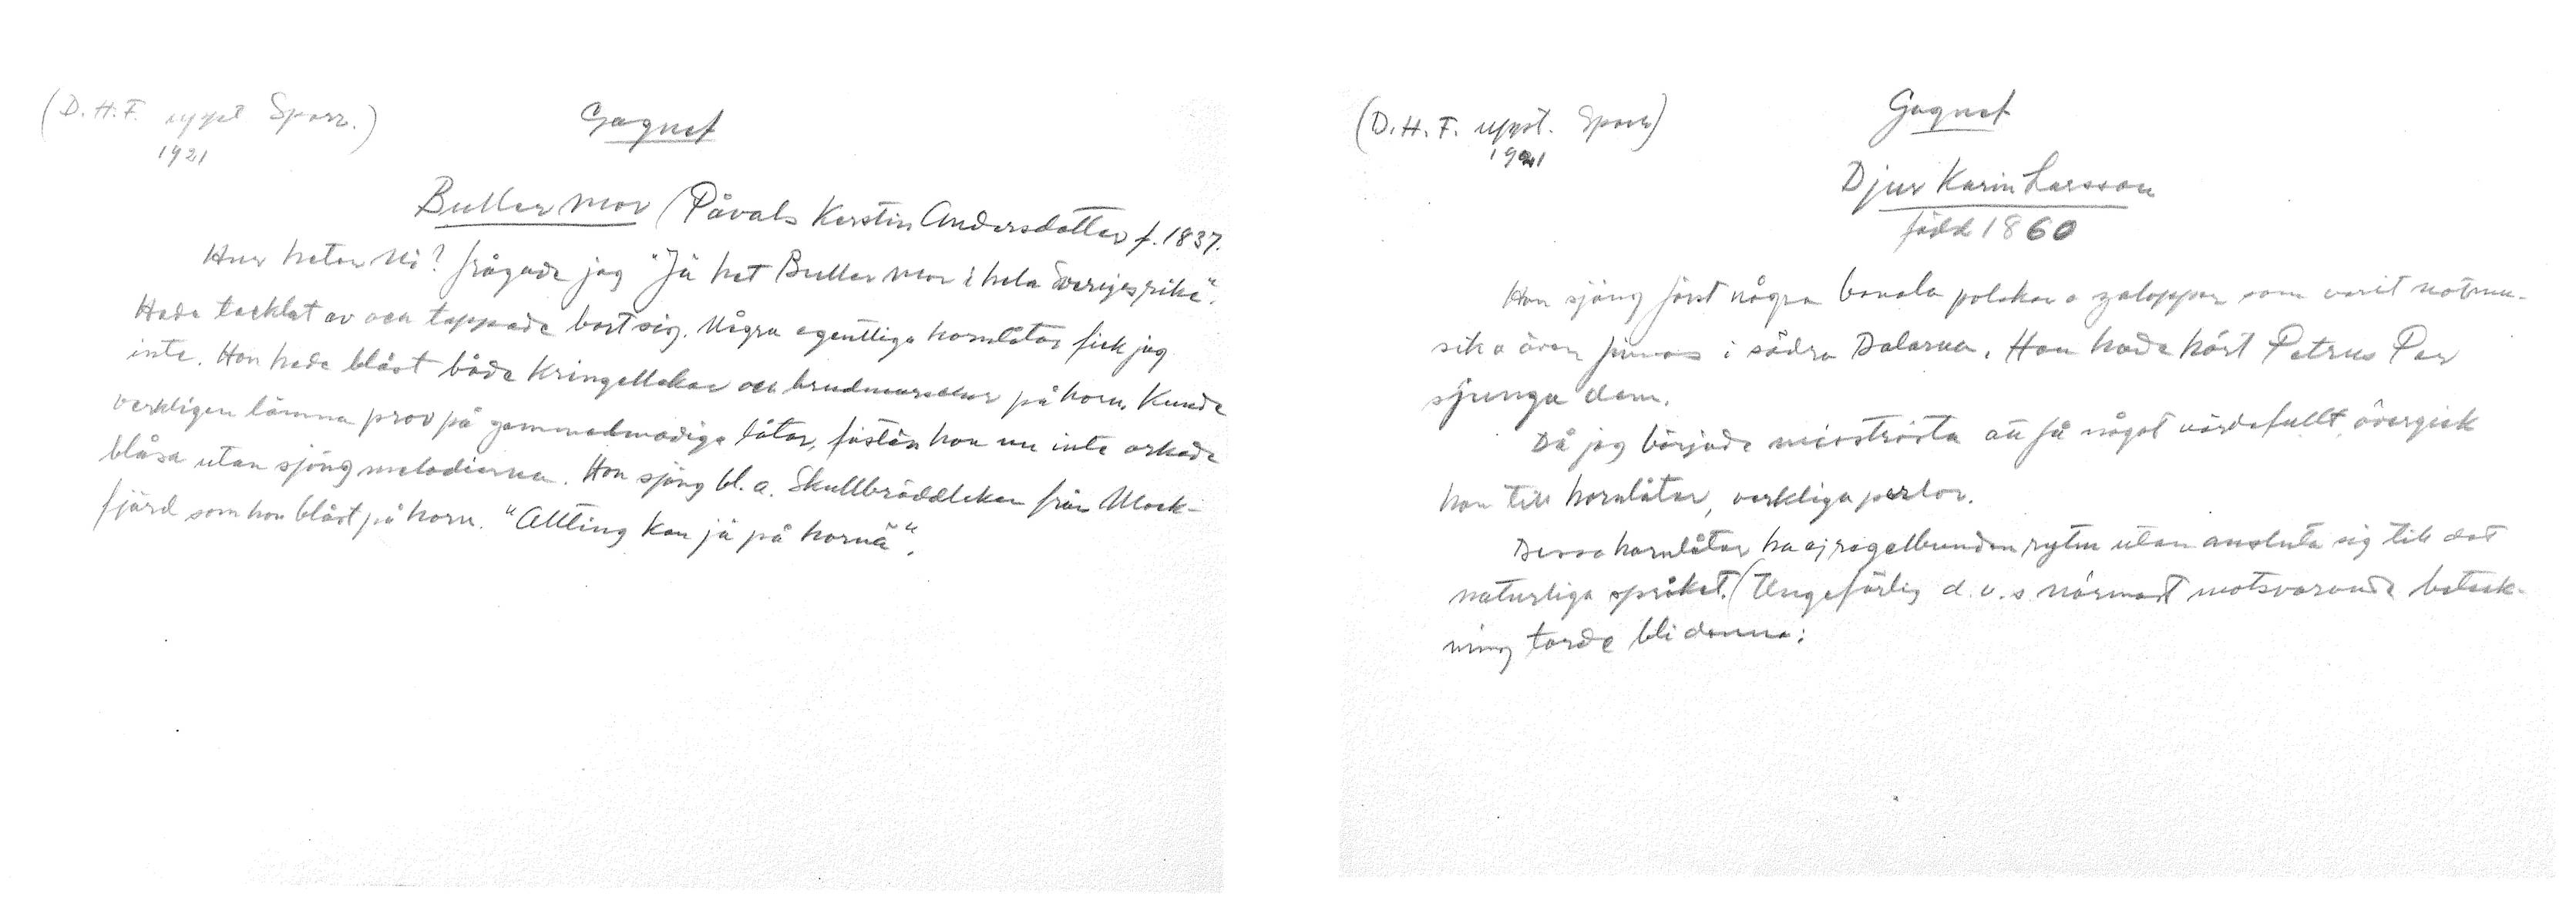 (D.H.F. uppt Sporr.)
1921
Gagnef
Buller Mor (Påvals Kerstin Andersdotter f. 1837.
Hur heter Ni? frågade jag "Jä het Buller Mor i hela Sverigesrike".
Hade tacklat av och tappade bort sig. Några egentliga hornlåtar fick jag
inte. Han hade blåst både Kringellekar och brudmarscher på horn. Kunde
verkligen lämna prov på gammalmodiga låtar, fastän hon nu inte orkade
blåsa utan sjöng melodierna. Hon sjöng bl.a. Skullbräddleken från Mock-
fjärd som hon blåst på horn. "Allting kan jä på hornä".
(D.H.F. uppt. Sporr)
1921
Gagnef
Djur Karin Larsson
född 1860
Hon sjöng först några banala polskor o galopper som varit notmu-
sik o även finnas i södra Dalarna. Hon hade hört Petrus Per
sjunga dem.
Då jag började misströsta att få något värdefullt, övergick
hon till hornlåtar, verkliga perlor.
Dessa hornlåtar ha ej regelbunden rytm utan ansluta sig till det
naturliga språket. (Ungefärlig d.v.s närmast motsvarande beteck-
ning torde bli denna: